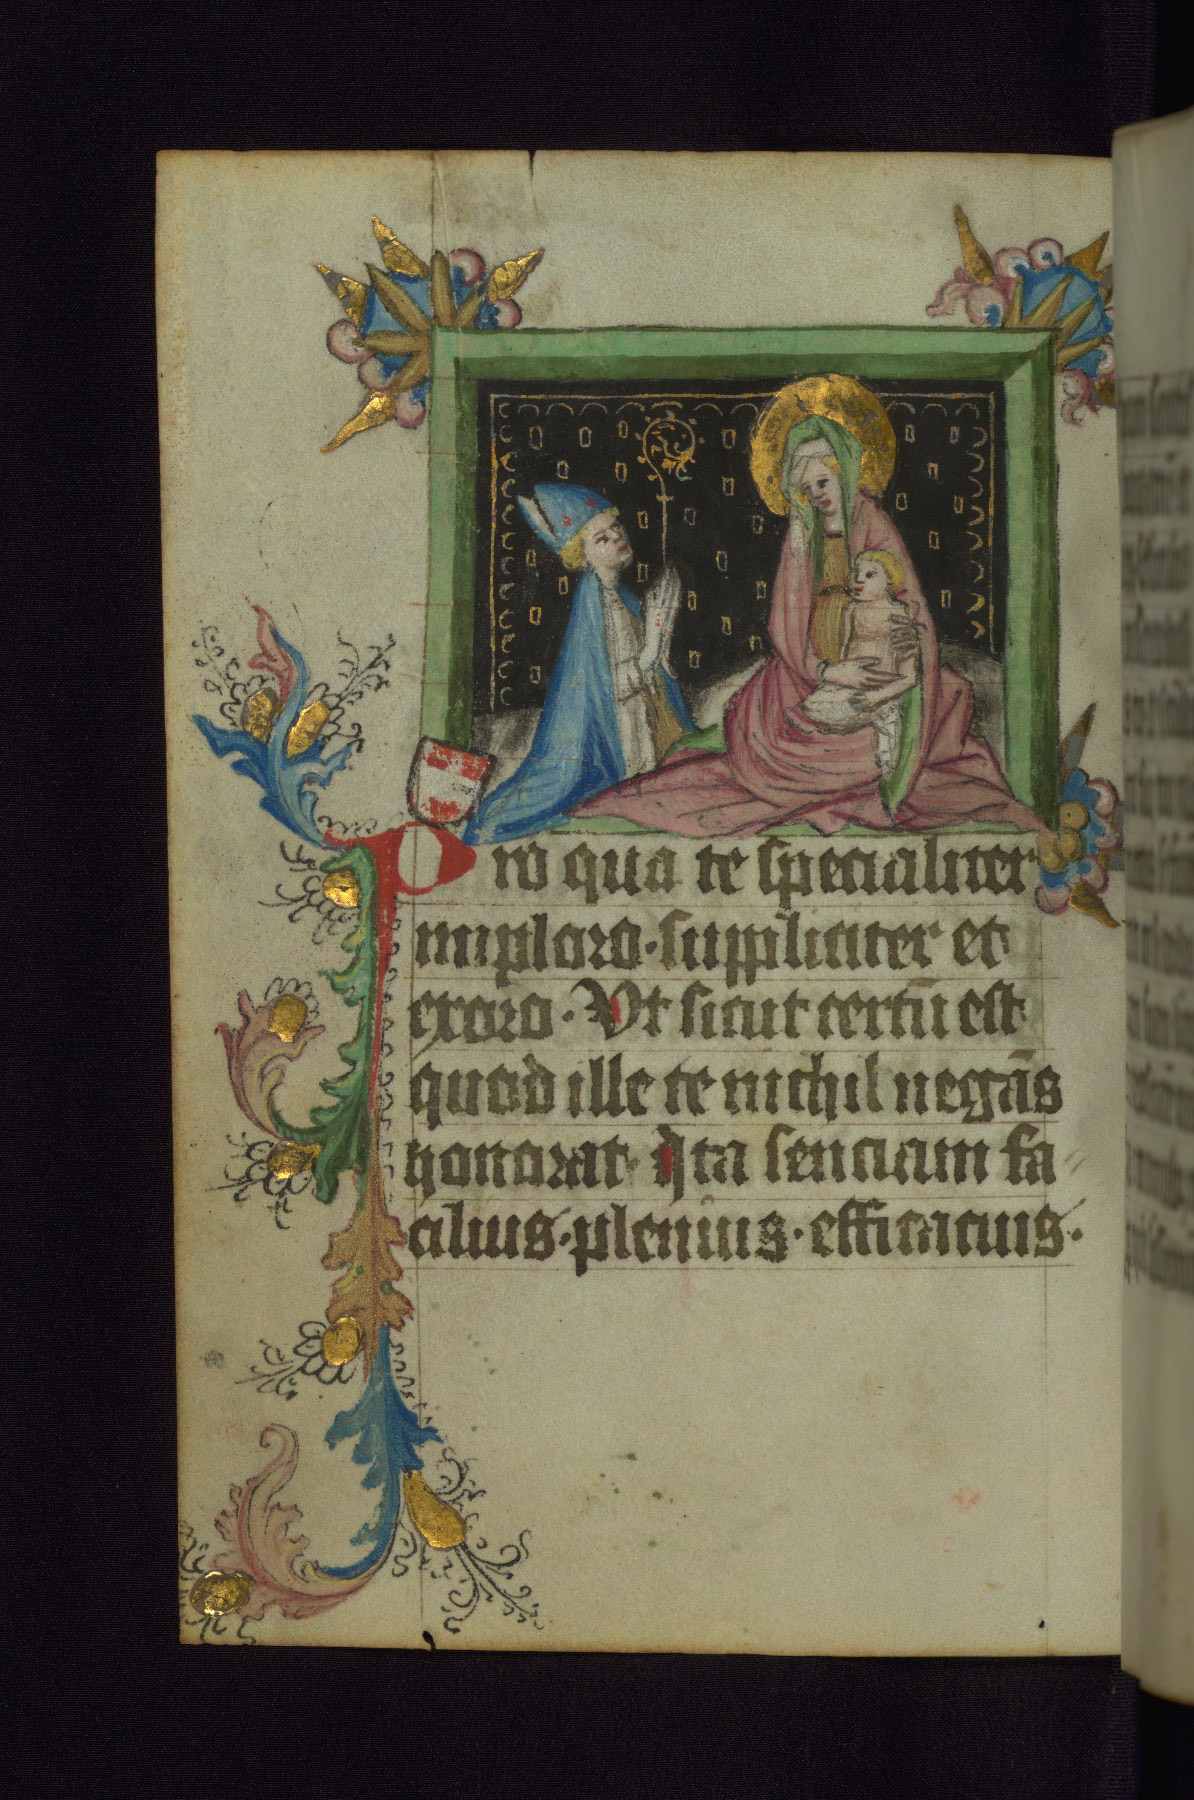 Pro qua te specialiter
imploro·suppliciter et
exoro· Ut sicut certū est
quod ille te nichil negās
honorat· Ita senciam fa
cilius·plenius·efficacius·